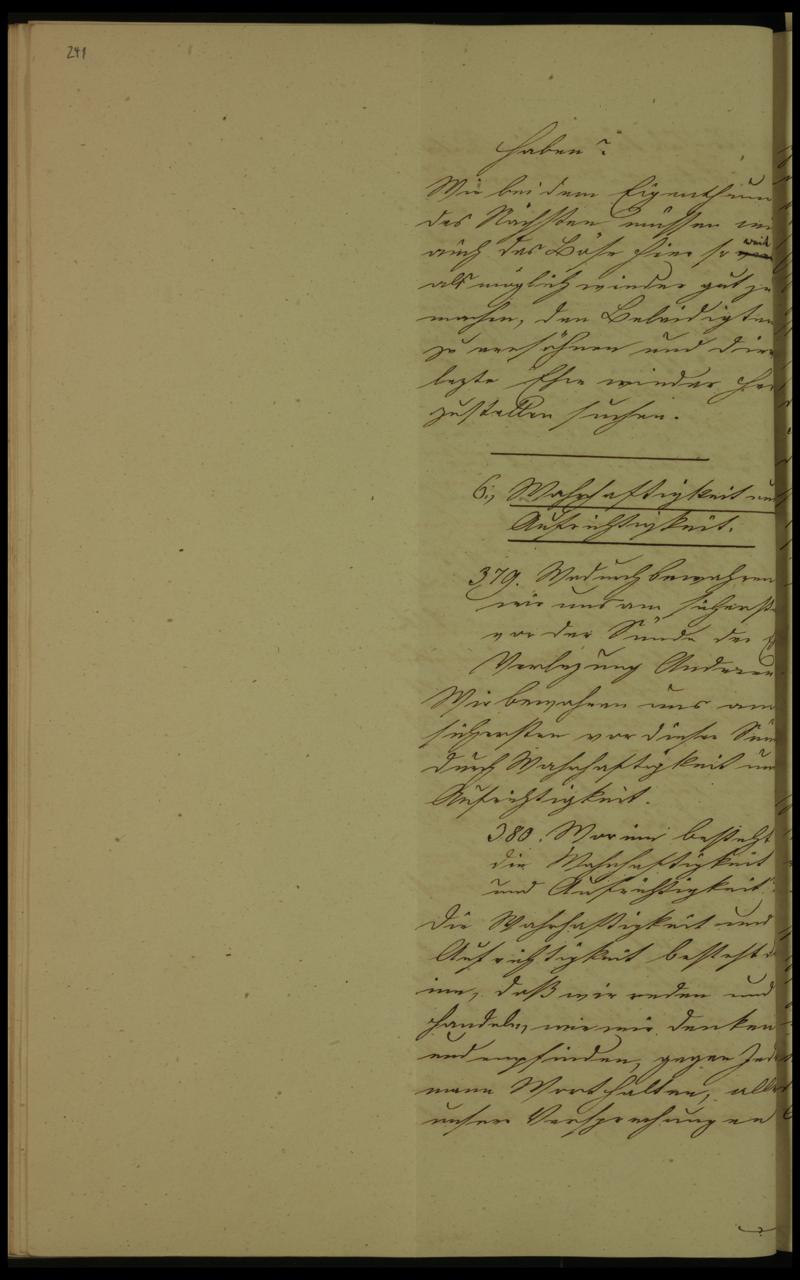 241
haben?
Wie bei dem Eigenthum
des Nächsten müssen wir
auch das Böse hier so weit
als möglich wieder gut zu
machen, den Beleidigten
zu versöhnen und die ver
lezte Ehre wieder her
zustellen suchen.
6., Wahrhaftigkeit und
Aufrichtigkeit.
379. Wodurch bewahren
wir uns am sichersten
vor der Sünde der
Verlezung Anderer
Wir bewahren uns am
sichersten vor dieser Sün
durch Wahrhaftigkeit un
Aufrichtigkeit.
380. Worin besteht
die Wahrhaftigkeit
und Aufrichtigkeit?
Die Wahrhaftigkeit und
Aufrichtigkeit besteht da
inn, daß wir reden und
handeln, wie wir denken
und empfinden, gegen Jeder
mann Wort halten, alle
unsere Versprechungen